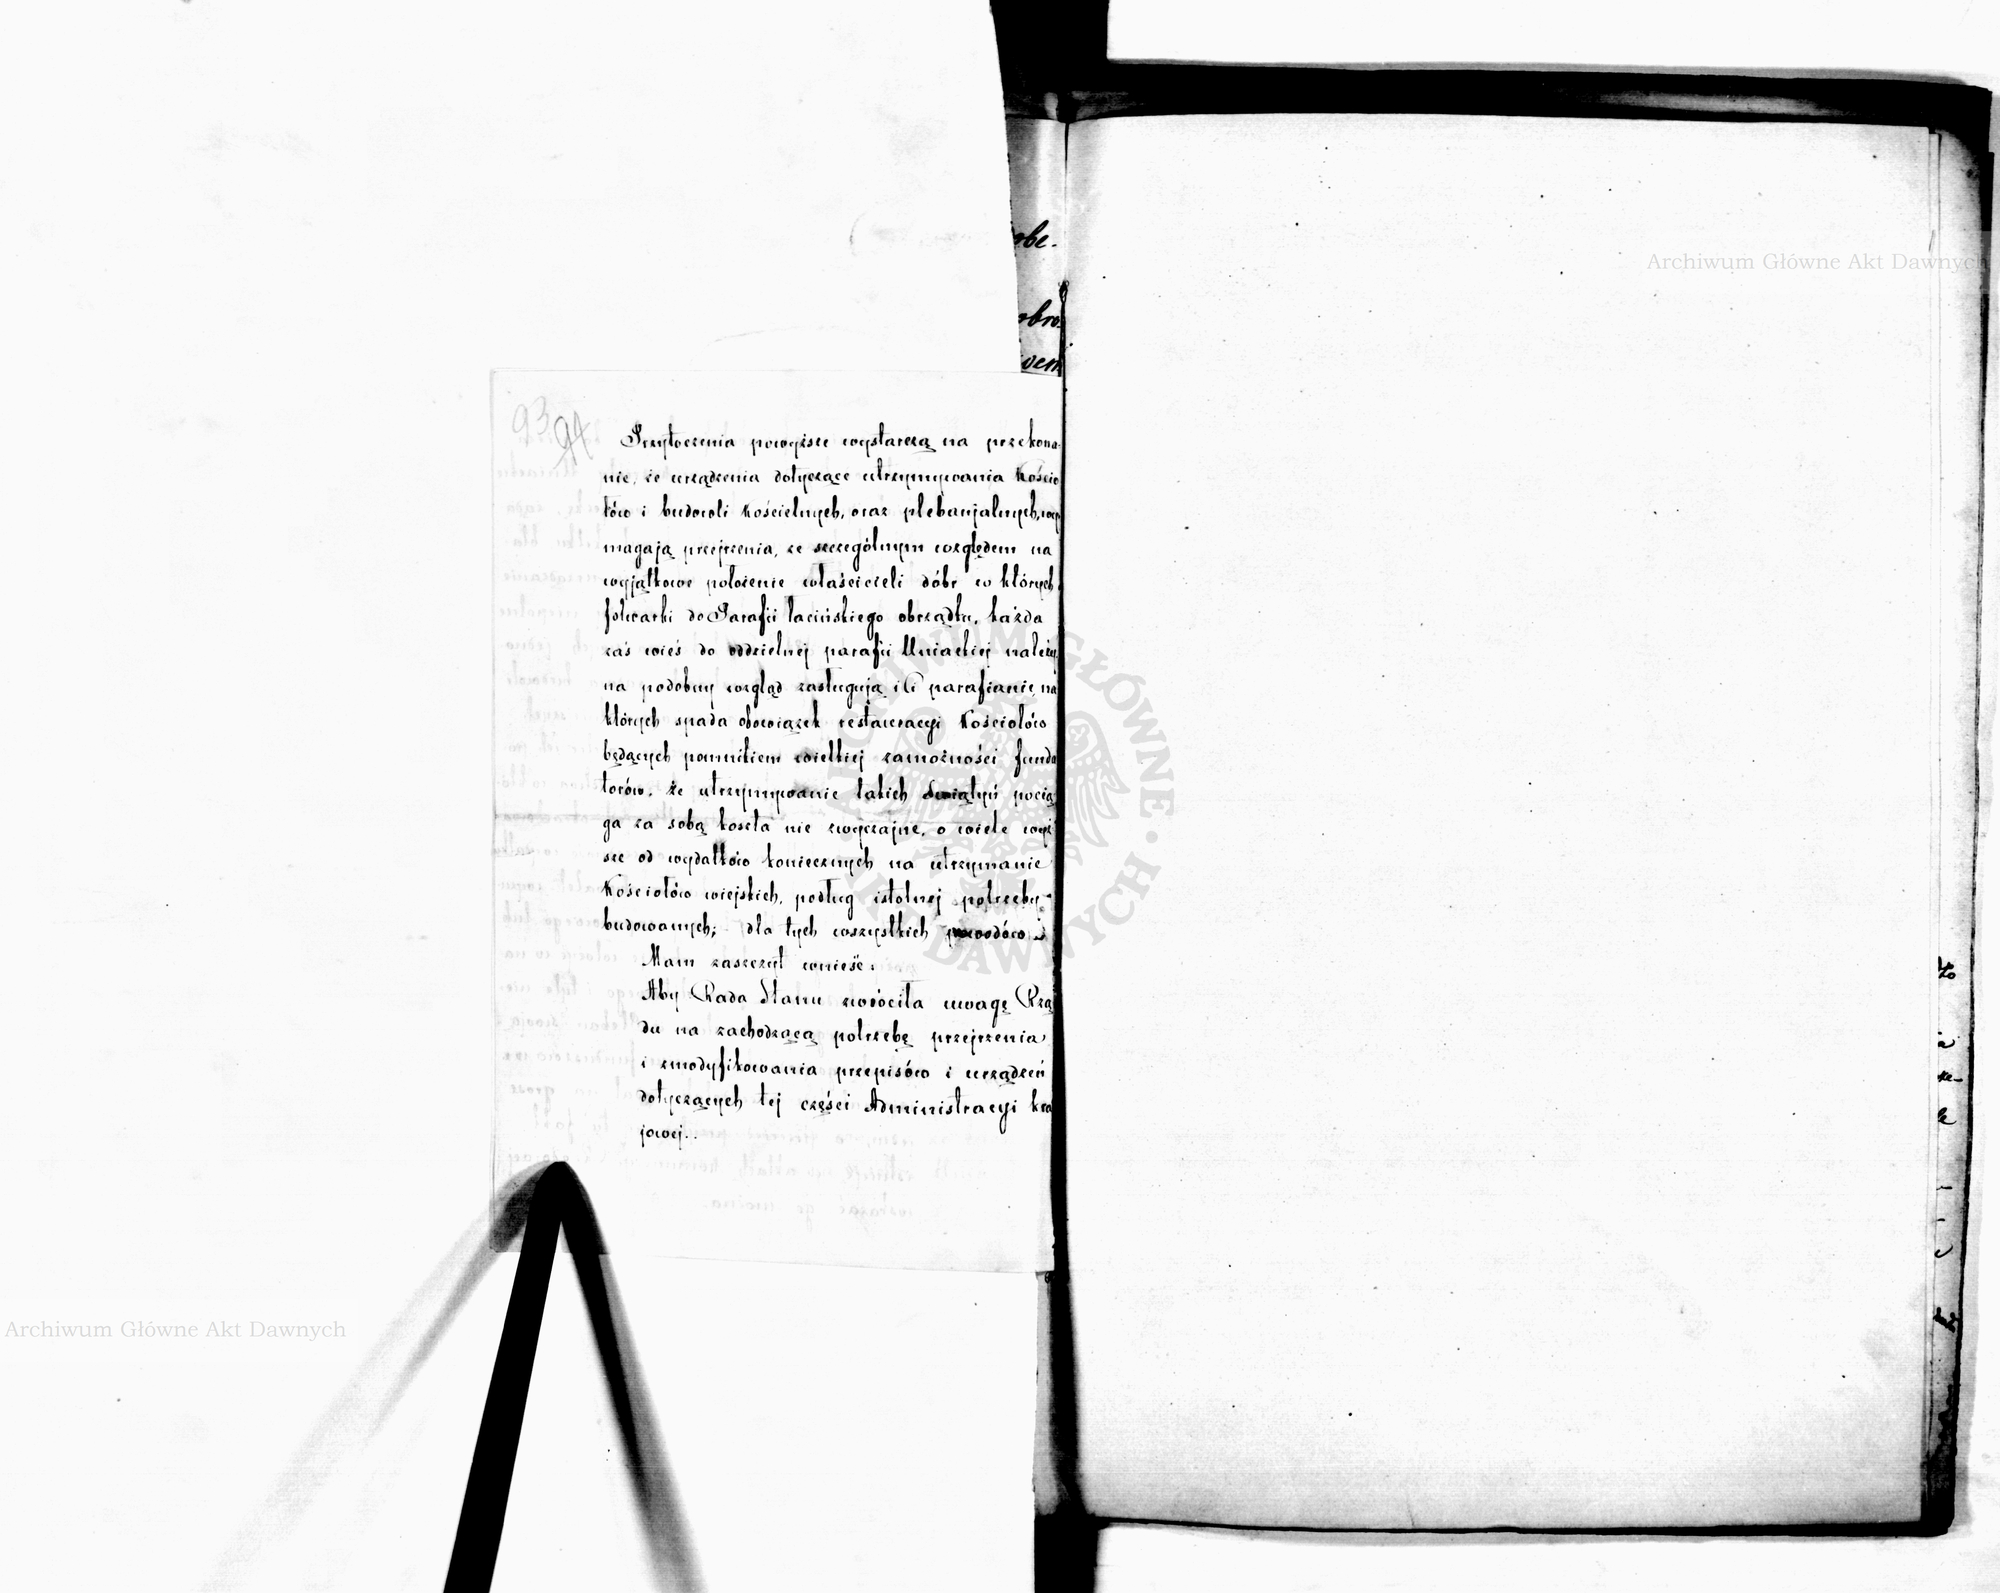 93 94
Przytoczenia powyższe wystarczą na przekona-
nie, że urządzenia dotyczące utrzymywania Kościo
łów i budowli Kościelnych, oraz plebanjalnych, wy
magają przejrzenia, ze szczególnym względem na
wyjątkowe położenie właścicieli dóbr w których
folwarki do Parafii łacińskiego obrządku, każda
zaś wieś do oddzielnej parafii Uniackiej należy,
na podobny wzgląd zasługują i Ci parafianie, na
których spada obowiązek restauracyi Kościołów
będących pomnikiem wielkiej zamożności funda
torów. Że utrzymywanie takich Świątyń pocią
ga za sobą koszta nie zwyczajne, o wiele wyż
sze od wydatków koniecznych na utrzymanie
Kościołów wiejskich, podług istotnej potrzeby
budowanych; dla tych wszystkich powodów
Mam zaszczyt wnieść:
Aby Rada Stanu zwróciła uwagę Rzą
du na zachodzącą potrzebę przejrzenia
i zmodyfikowania przepisów i urządzeń
dotyczących tej części Administracyi kra
jowej.
obe.
obro
wem
Archiwum Główne Akt Dawnych
Archiwum Główne Akt Dawnych
ARCHIWUM GŁÓWNE · AKT DAWNYCH ·